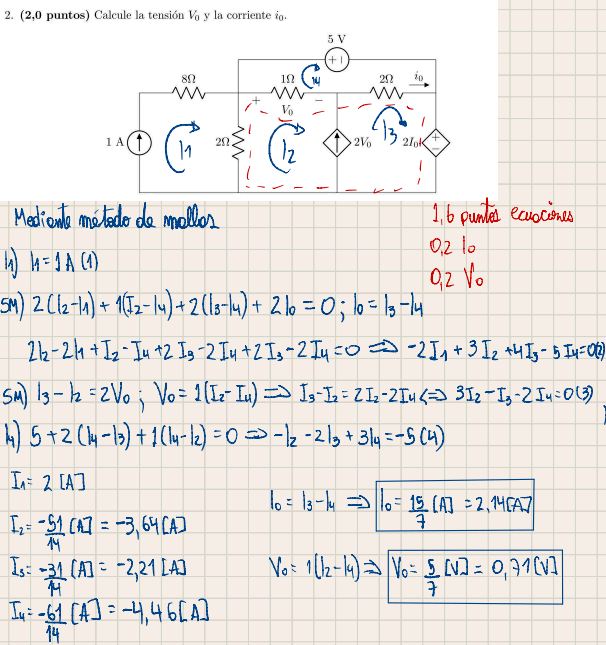 2. (2,0 puntos) Calcule la tensión V₀ y la corriente i₀.
5 V
+ -
8Ω
1Ω
I4
2Ω
i₀
+ V₀ -
1 A
I1
2Ω
I2
2V₀
I3
2I₀
+
-
Mediante método de mallas
1,6 puntos ecuaciones
0,2 I₀
0,2 V₀
I1) I1 = 1 A (1)
SM) 2(I2-I1) + 1(I2-I4) + 2(I3-I4) + 2I₀ = 0 ; I₀ = I3-I4
2I2 - 2I1 + I2 - I4 + 2I3 - 2I4 + 2I3 - 2I4 = 0 => -2I1 + 3I2 + 4I3 - 5I4 = 0 (2)
SM) I3 - I2 = 2V₀ ; V₀ = 1(I2-I4) => I3-I2 = 2I2-2I4 <=> 3I2 - I3 - 2I4 = 0 (3)
I4) 5 + 2(I4-I3) + 1(I4-I2) = 0 => -I2 - 2I3 + 3I4 = -5 (4)
I1 = 2 [A]
I2 = -51/14 [A] = -3,64 [A]
I3 = -31/14 [A] = -2,21 [A]
I4 = -61/14 [A] = -4,46 [A]
I₀ = I3 - I4 => I₀ = 15/7 [A] = 2,14 [A]
V₀ = 1(I2-I4) => V₀ = 5/7 [V] = 0,71 [V]